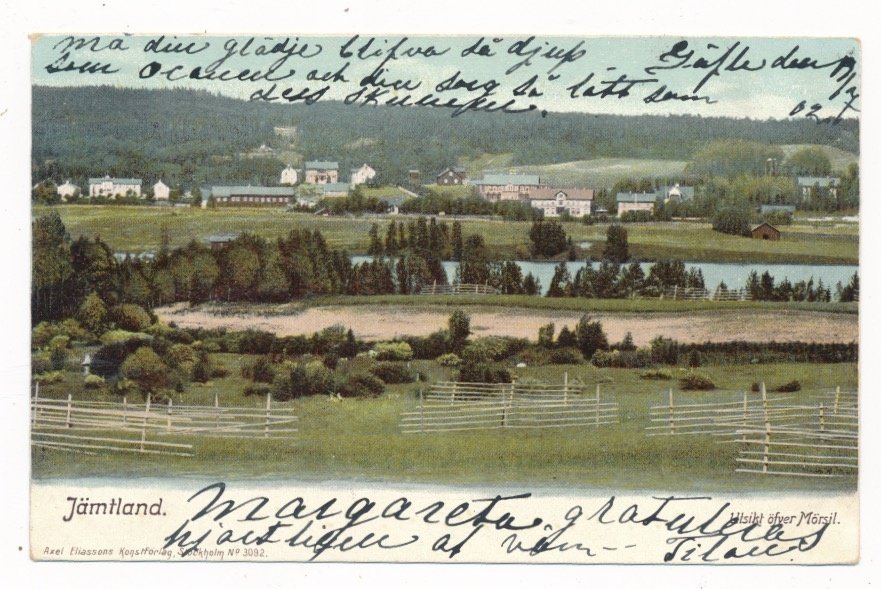 må din glädje blifva så djup
som oceanen och din sorg så lätt som
dess skum
Gäfle den 19/7
02.
Jämtland.
Utsikt öfver Mörsil.
Margareta gratuleras
hjärtligen af vän
Axel Eliassons Konstförlag, Stockholm Nº 3092.